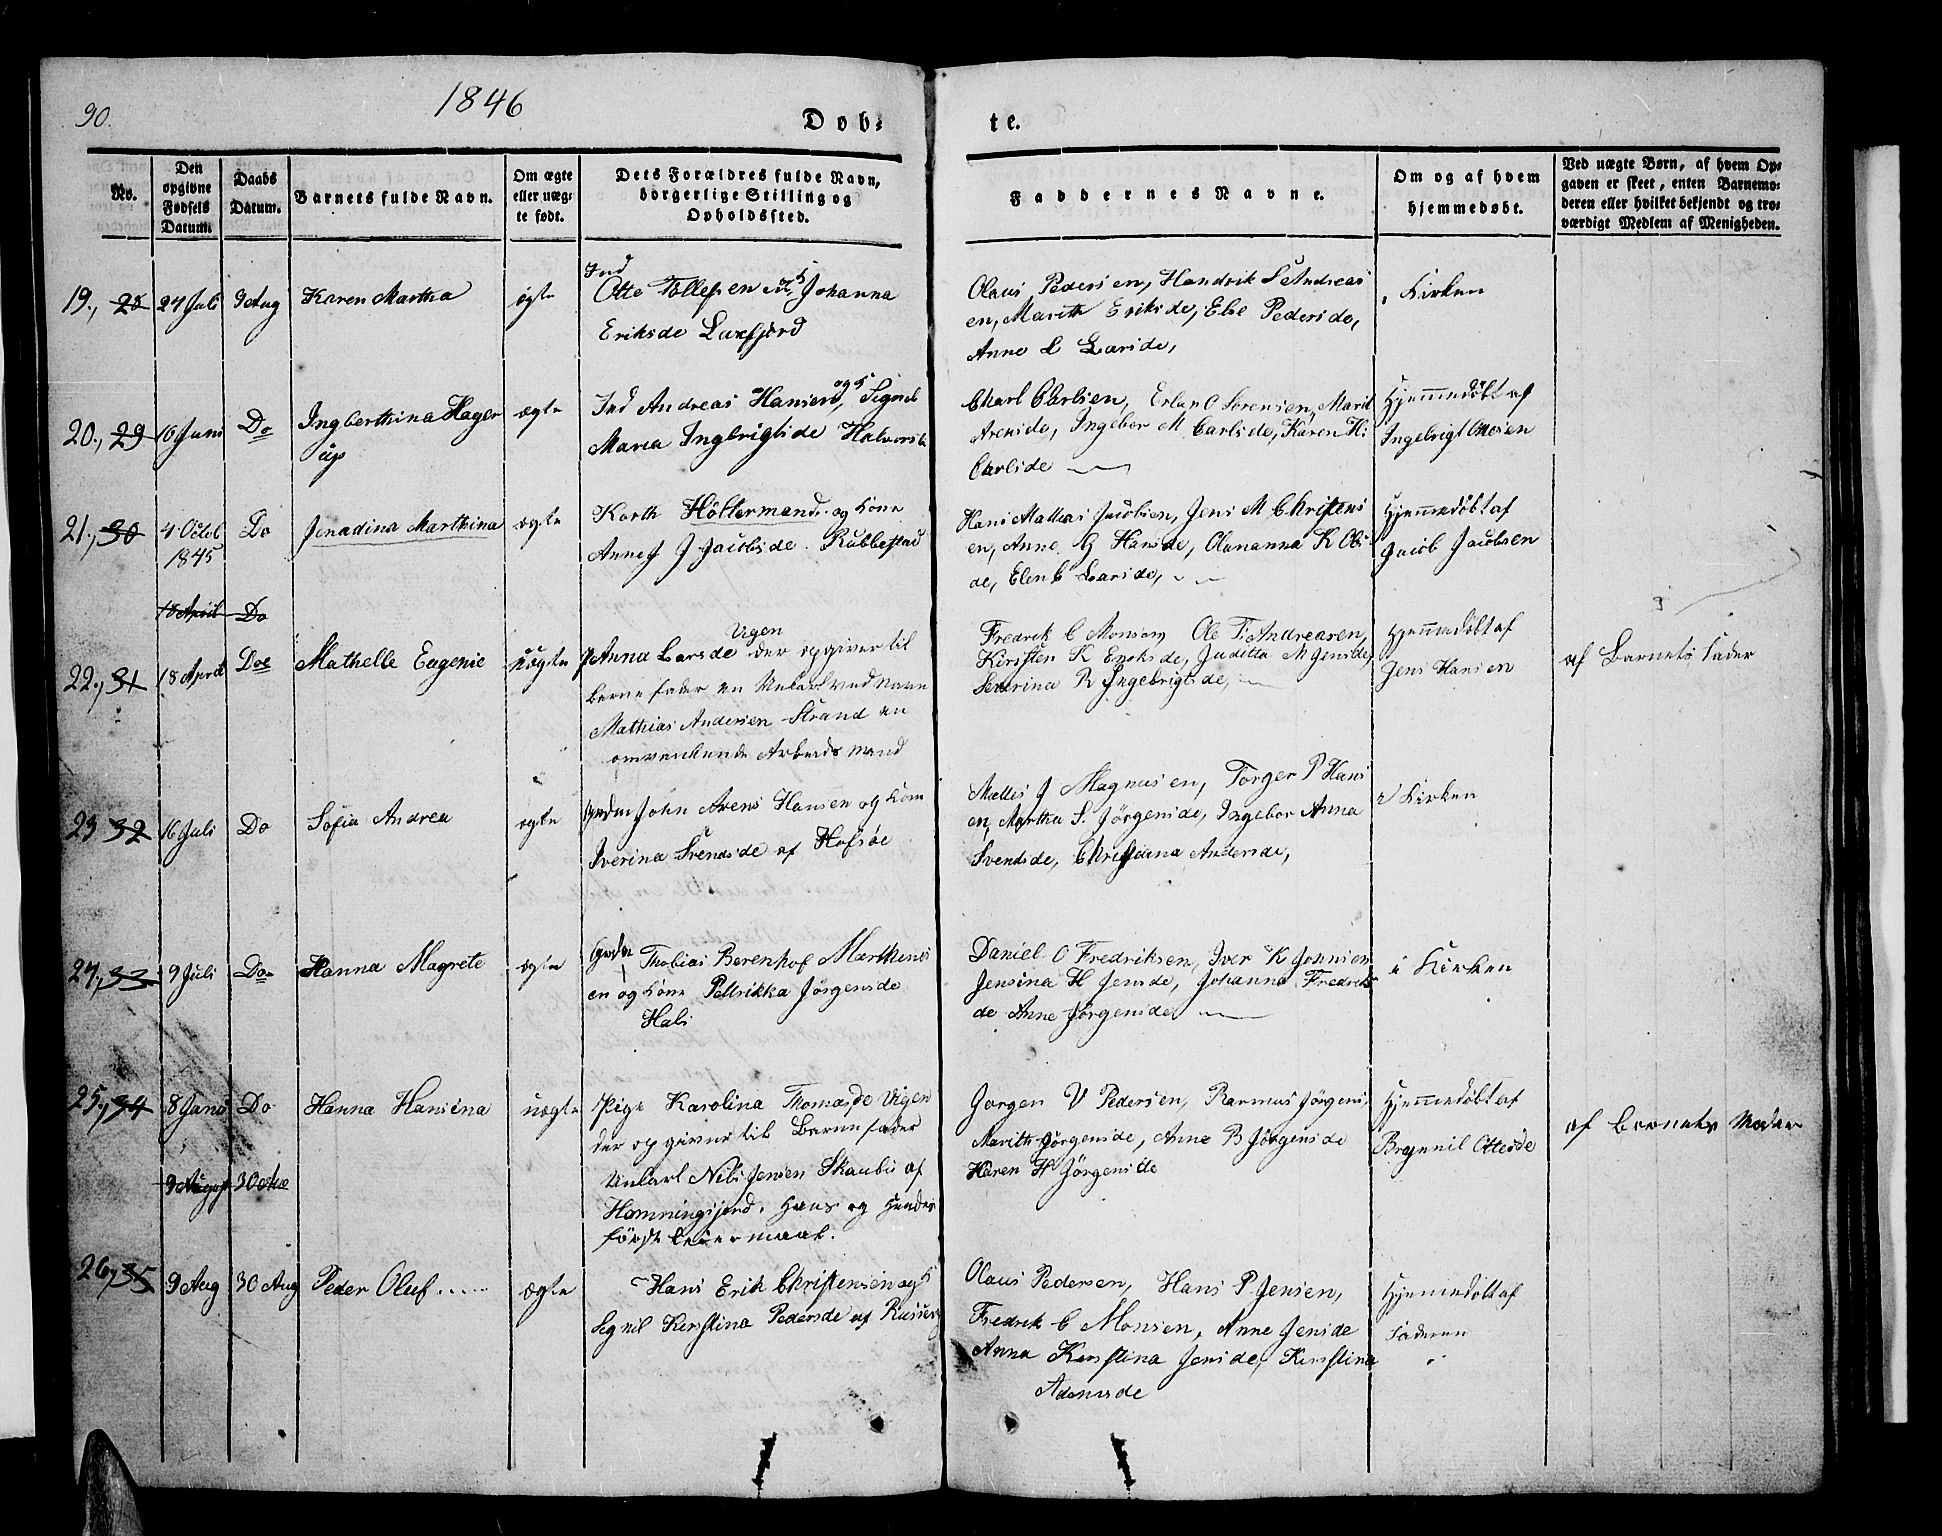 90.
1846
Døb-
te.
No.
Den opgivne Fødsels Datum.
Daabs Datum.
Barnets fulde Navn.
Om ægte eller uægte født.
Dets Forældres fulde Navn, borgerlige Stilling og Opholdssted.
Faddernes Navne.
Om og af hvem hjemmedøbt.
Ved uægte Børn, af hvem Opgaven er skeet, enten Barnemoderen eller hvilket bekjendt og troværdigt Medlem af Menigheden.
19., 28
24 Juli
9 Aug
Karen Martha
ægte
Ind
Otte Tollefsen Johanna
Eriksde Laxfjord
Olaus Pedersen, Hendrik S Andreas
en, Marith Eriksde, Else Pedersde,
Anne L Larsde,
i Kirken
20., 29
16 Juni
Do
Ingberthina Hager
up
ægte
Ind Andreas Hansen og K Signel
Maria Ingbrigtsde
Charl Carlsen, Erlan O Sørensen, Marit
Arensde, Ingebor M Carlsde, Karen H:
Carlsde
Hjemmedøbt af
Ingebrigt Ottesen
21., 30
4 Octob
1845
Do
Jenadina Marthina
ægte
Korth Holtermand og Kone
J Jacobsde. Rubbestad
Hans Mathias Jacobsen, Jens M Christens
en, Anne G Hansde, Olananna K Ols
de, Elen C Larsde,
Hjemmedøbt af
Jacob Jacobsen
18 April
Do
22., 31
18 April
Do
Mathelle Eugenie
uægte
P Anna Larsde Vigen der opgiver til
Barnefader en Unkarl ved Navn
Mathias Andersen Strand en
omvankende Arbeidsmand
Fredrik C Monsen Ole T. Andreasen,
Kirsten K Eriksde, Juditta M Jensde,
Severina R Ingebrigtsde,
Hjemmedøbt af
Jens Hansen
af Barnets Fader
23 32
16 Juli
Do
Sofia Andrea
ægte
John Arens Hansen og Kone
Iverina Svendsde af Hofsøe
J Magnusen, Torger P Hans
en, Martha S. Jørgensde, Ingebor Anna
Svendsde, Christiana Andersde,
i Kirken
24., 33
9 Juli
Do
Hanna Magrete
ægte
Thobias Berenhof Marthenus
en og Kone Petrikka Jørgensde
Daniel O Fredriksen, Iver K Jonnsen
Jensina H Jensde, Johanna Fredriks
de Anne Jørgensde
i Kirken
25., 34
8 Janu
Do
Hanna Hansina
uægte
Pige Karolina Thomasde Vigen
der opgiver til Barnefader
Unkarl Nils Jensen Skaubu af
Hemmingsjord, Hans og Hendes
første Leiermaal.
Jørgen V Pedersen, Rasmus Jørgens
Marith Jørgensde, Anne B Jørgensde
Karen H Jørgensde
Hjemmedøbt af
Brynnil Ottesde
af Barnets Moder
9 August
30
26., 35
9 Aug
30 Aug
Peder Oluf
ægte
Hans Erik Christensen og K
Signil Kerstina Pedersde af
Olaus Pedersen, Hans P. Jensen,
Fredrik C Monsen, Anne Jensde
Anna Kerstina Jensde, Kerstina
Adamsde
Hjemmedøbt af
Faderen